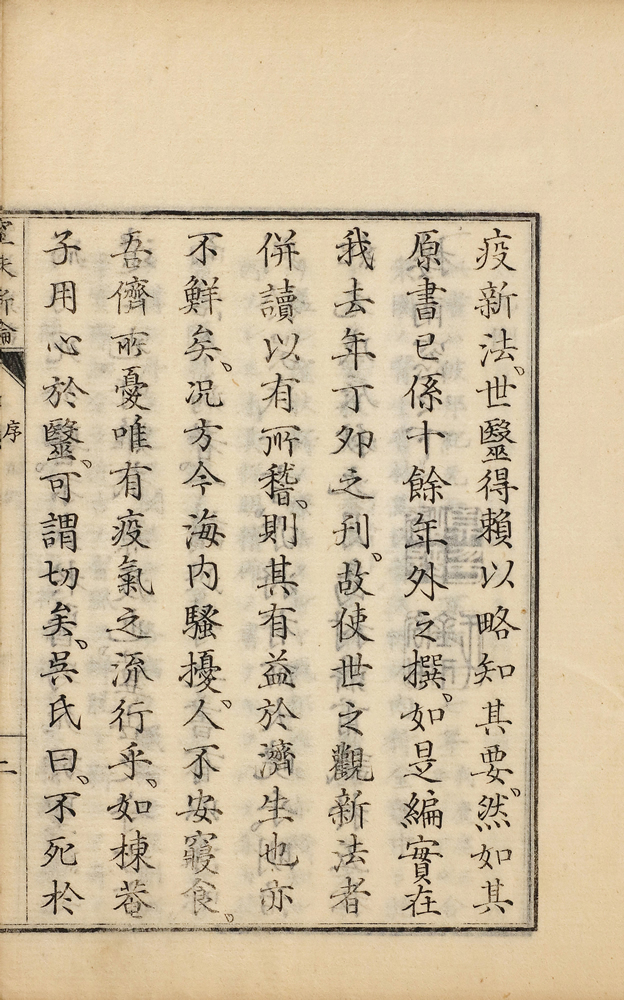 疫新法。世毉得賴以略知其要。然如其
原書已係十餘年外之撰。如是編實在
我去年丁夘之刊。故使世之觀新法者
併讀以有所稽。則其有益於濟生也亦
不鮮矣。况方今海内騷擾。人不安寢食。
吾儕所憂唯有疫氣之流行乎。如棟菴
子用心於毉。可謂切矣。吳氏曰。不死於
序
二